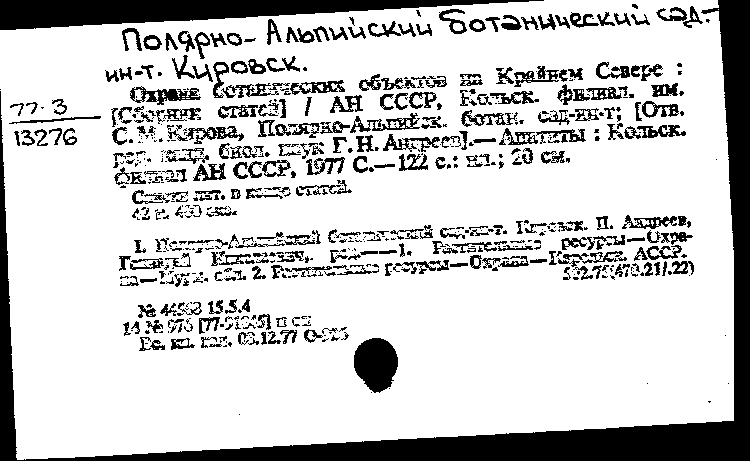 Полярно-Альпийский ботанический сад-
ин-т. Кировск.
77-3
13276
Охрана ботанических объектов на Крайнем Севере :
[Сборник статей] / АН СССР, Кольск. филиал. им.
С. М. Кирова, Полярно-Альпийск. ботан. сад-ин-т; [Отв.
ред. канд. биол. наук Г. Н. Андреев].— Апатиты : Кольск.
филиал АН СССР, 1977 С.—122 с.: ил.; 20 см.
Списки лит. в конце статей.
42 к. 400 экз.
I. Полярно-Альпийский ботанический сад-ин-т. Кировск. II. Андреев,
Геннадий Николаевич, ред.——1. Растительные ресурсы—Охра-
на—Мурм. обл. 2. Растительные ресурсы—Охрана—Карельск. АССР.
502.75(470.21/.22)
№ 15.5.4
14 № 976 п сп
Вс. кн. пал. 08.12.77